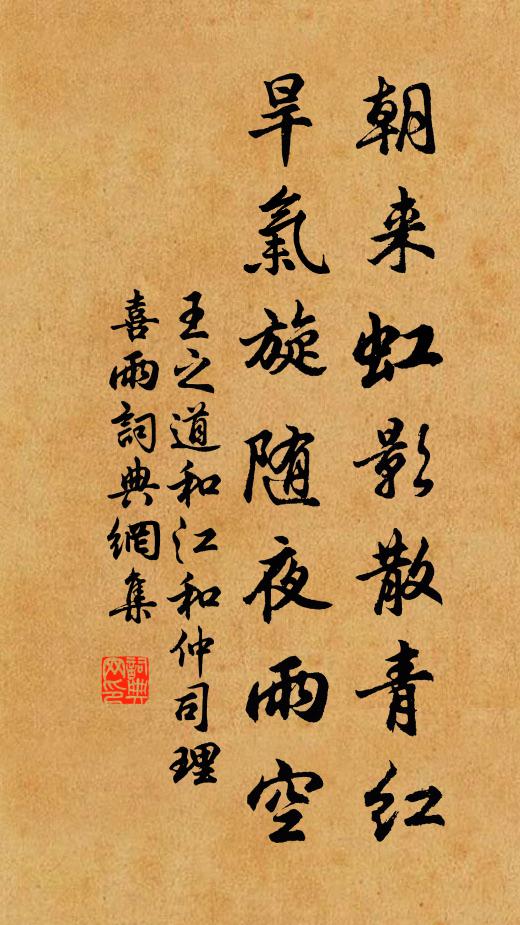 朝来虹影散青红
旱氣旋随夜雨空
王之道和江和仲司理
喜雨詞典網集
詞典网印